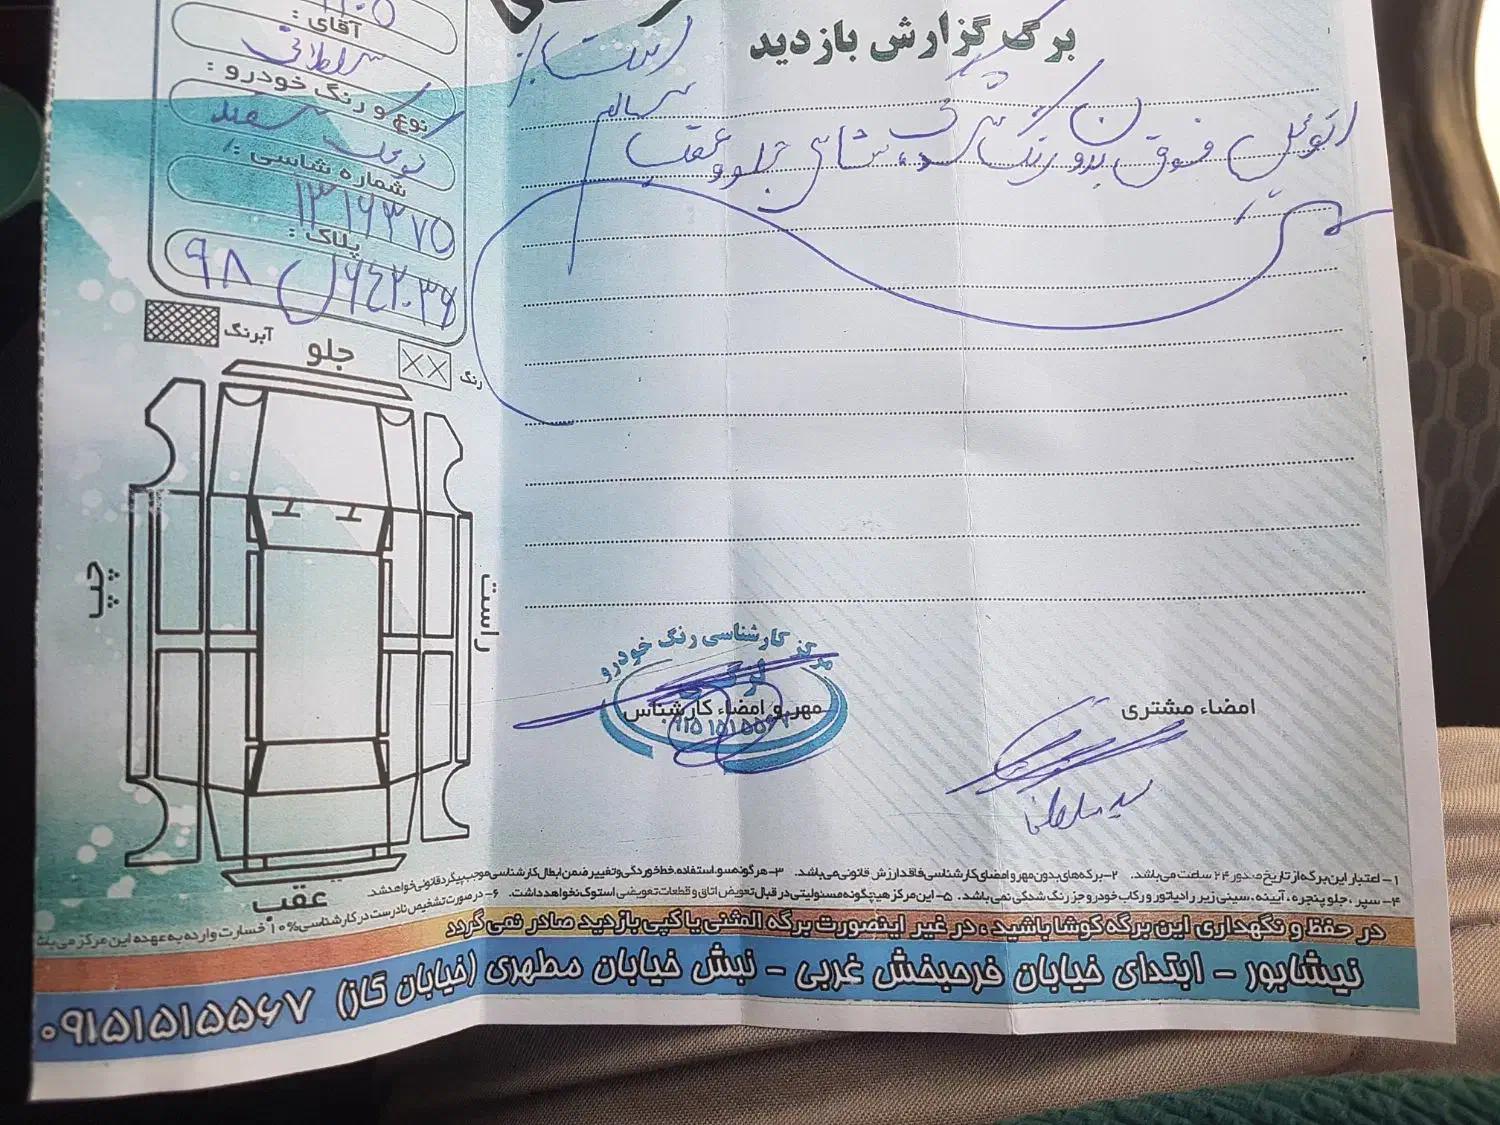 برگ گزارش بازدید
اتومبیل فوق بدون رنگ شدگی، شاسی جلو و عقب سالم است
آقای :
سلطانی
نوع و رنگ خودرو :
کوئیک سفید
شماره شاسی :
۱۳۱۶۳۷۵
پلاک :
۹۸
آبرنگ
رنگ
جلو
چپ
راست
عقب
مرکز کارشناسی رنگ خودرو
مهر و امضاء کارشناس
امضاء مشتری
۱- اعتبار این برگه از تاریخ صدور ۲۴ ساعت می باشد. ۲- برگه های بدون مهر و امضای کارشناسی فاقد ارزش قانونی می باشد. ۳- هر گونه سو استفاده، خط خوردگی و تغییر ضمن ابطال کارشناسی موجب پیگرد قانونی خواهد شد.
۴- سپر، جلو پنجره، آیینه، سینی زیر رادیاتور و رکاب خودرو جز رنگ شدگی نمی باشد. ۵- این مرکز هیچگونه مسئولیتی در قبال تعویض اتاق و قطعات تعویضی استوک نخواهد داشت. ۶- در صورت تشخیص نادرست در کارشناسی ۱۰% خسارت وارده به عهده این مرکز می باشد
در حفظ و نگهداری این برگه کوشا باشید، در غیر اینصورت برگه المثنی یا کپی بازدید صادر نمی گردد
نیشابور - ابتدای خیابان فرحبخش غربی - نبش خیابان مطهری (خیابان گاز) ۰۹۱۵۱۵۱۵۵۶۷